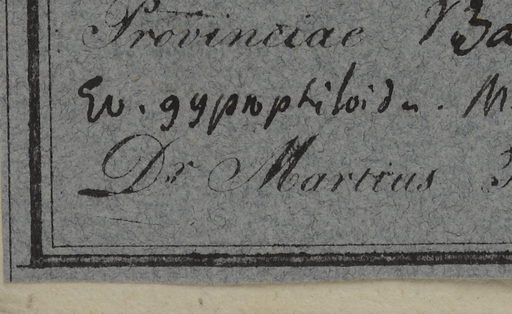 Provinciae Ba
Ev. gypsophiloides. M
Dr Martius